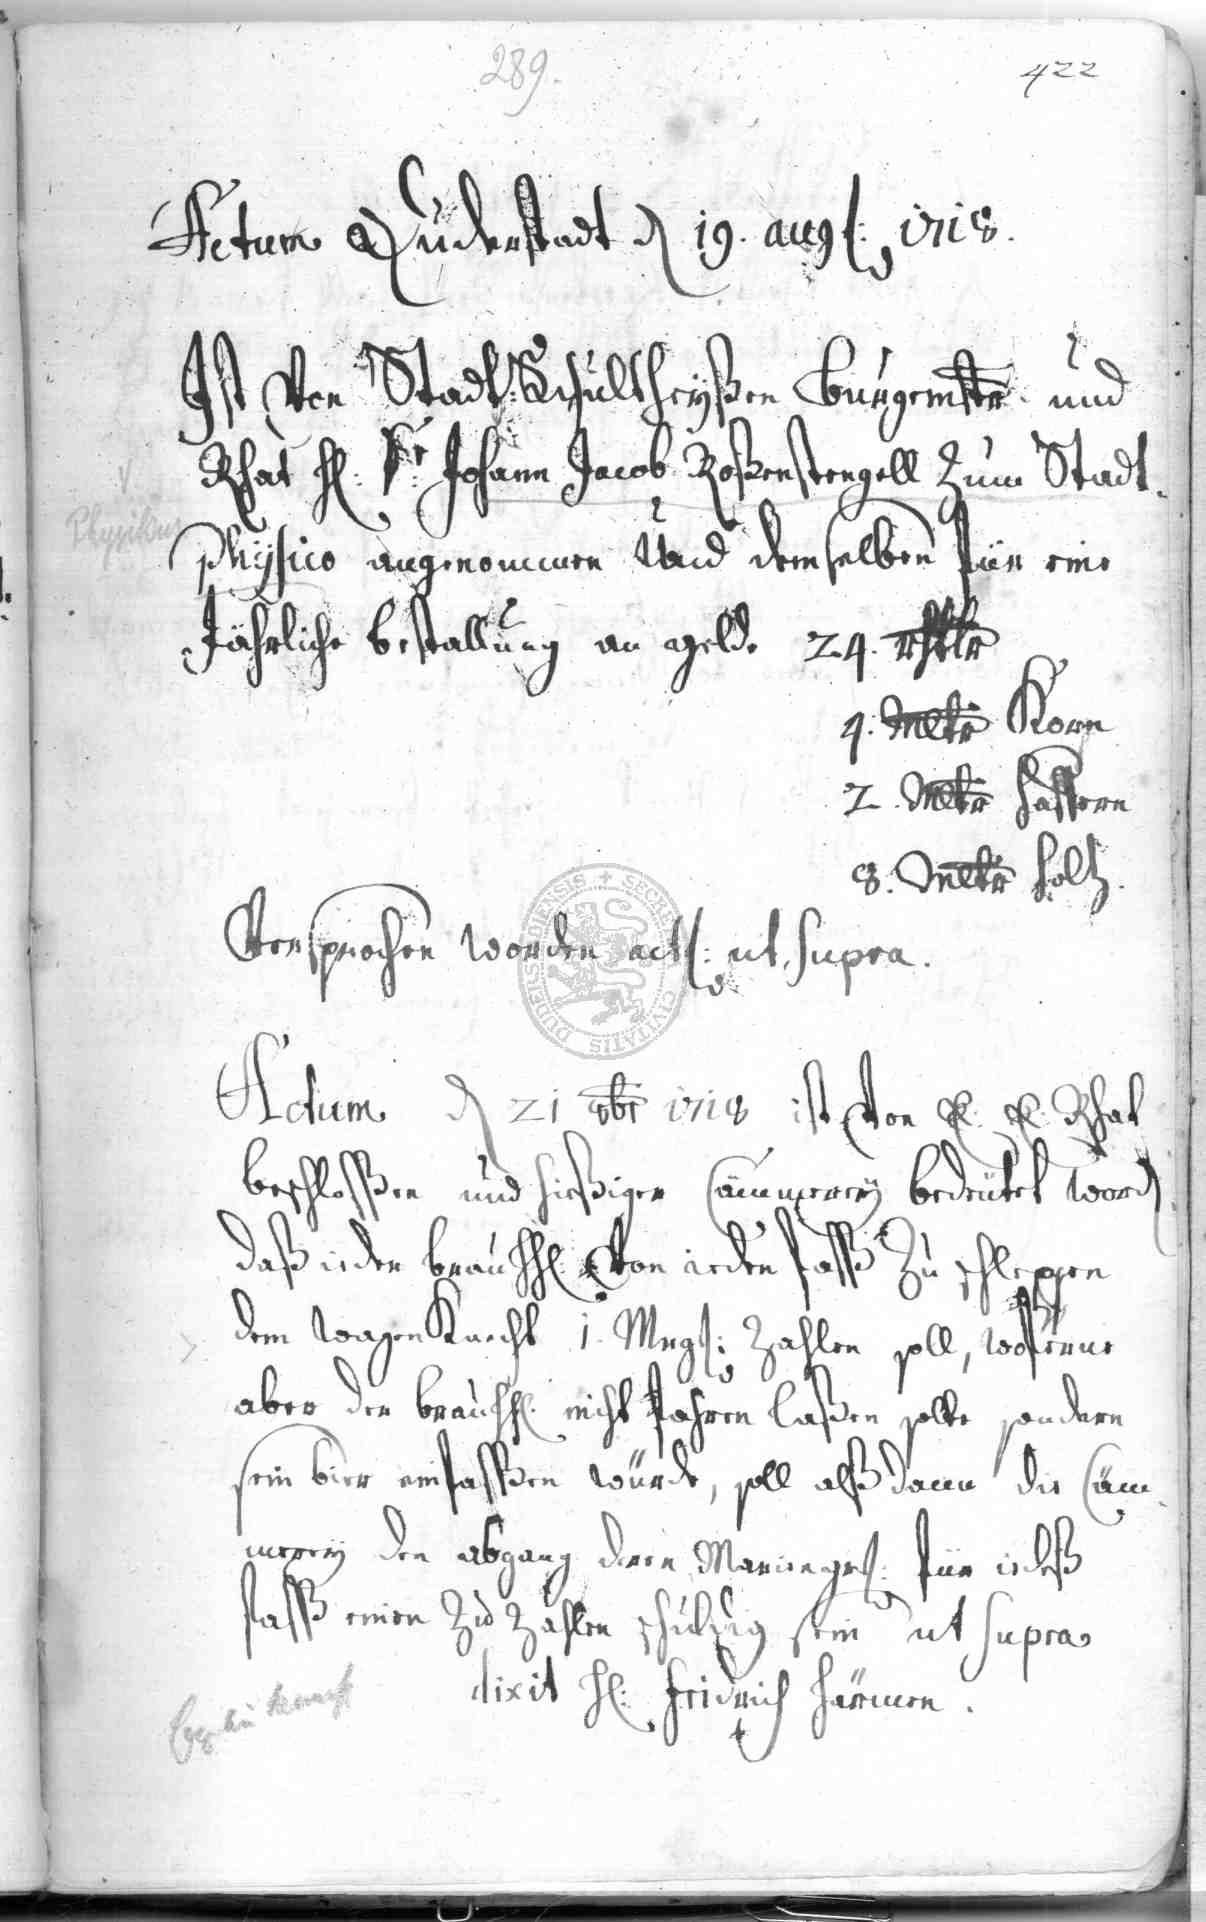 289.
422
Actum Duderstadt d 19. augt: 1718.
Ist Von Stadt: Schultheyßen Burgemstr und
Rhat H: Dr: Johann Jacob Roßenstengell Zum Stadt-
Physikus
Physico angenommen Und demselben für eine
Jährliche bestallung an gelde 24. rthlr
4. Mltr Korn
2. Mltr haffern
8. Mltr holtz.
Versprochen worden act: ut supra.
Actum d 21 8br 1718 ist Von E: E: Rhat
beschloßen und hießiger Cämmerey bedeutet word
daß ieder brauh: Von ieden faß Zu schleppen
dem wagen Knecht 1. Mrgs: Zahlen soll, woferne
aber der brauh: nicht fahren laßen solte sondern
sein bier einfaßen würde, soll alßdann die Cäm-
merey den abgang deren Mariengrs: für iedeß
faß einen Zu Zahlen schuldig sein ut supra
dixit H: Fridrich Härmen.
SECRET CIVITATIS DUDERSTADIENSIS